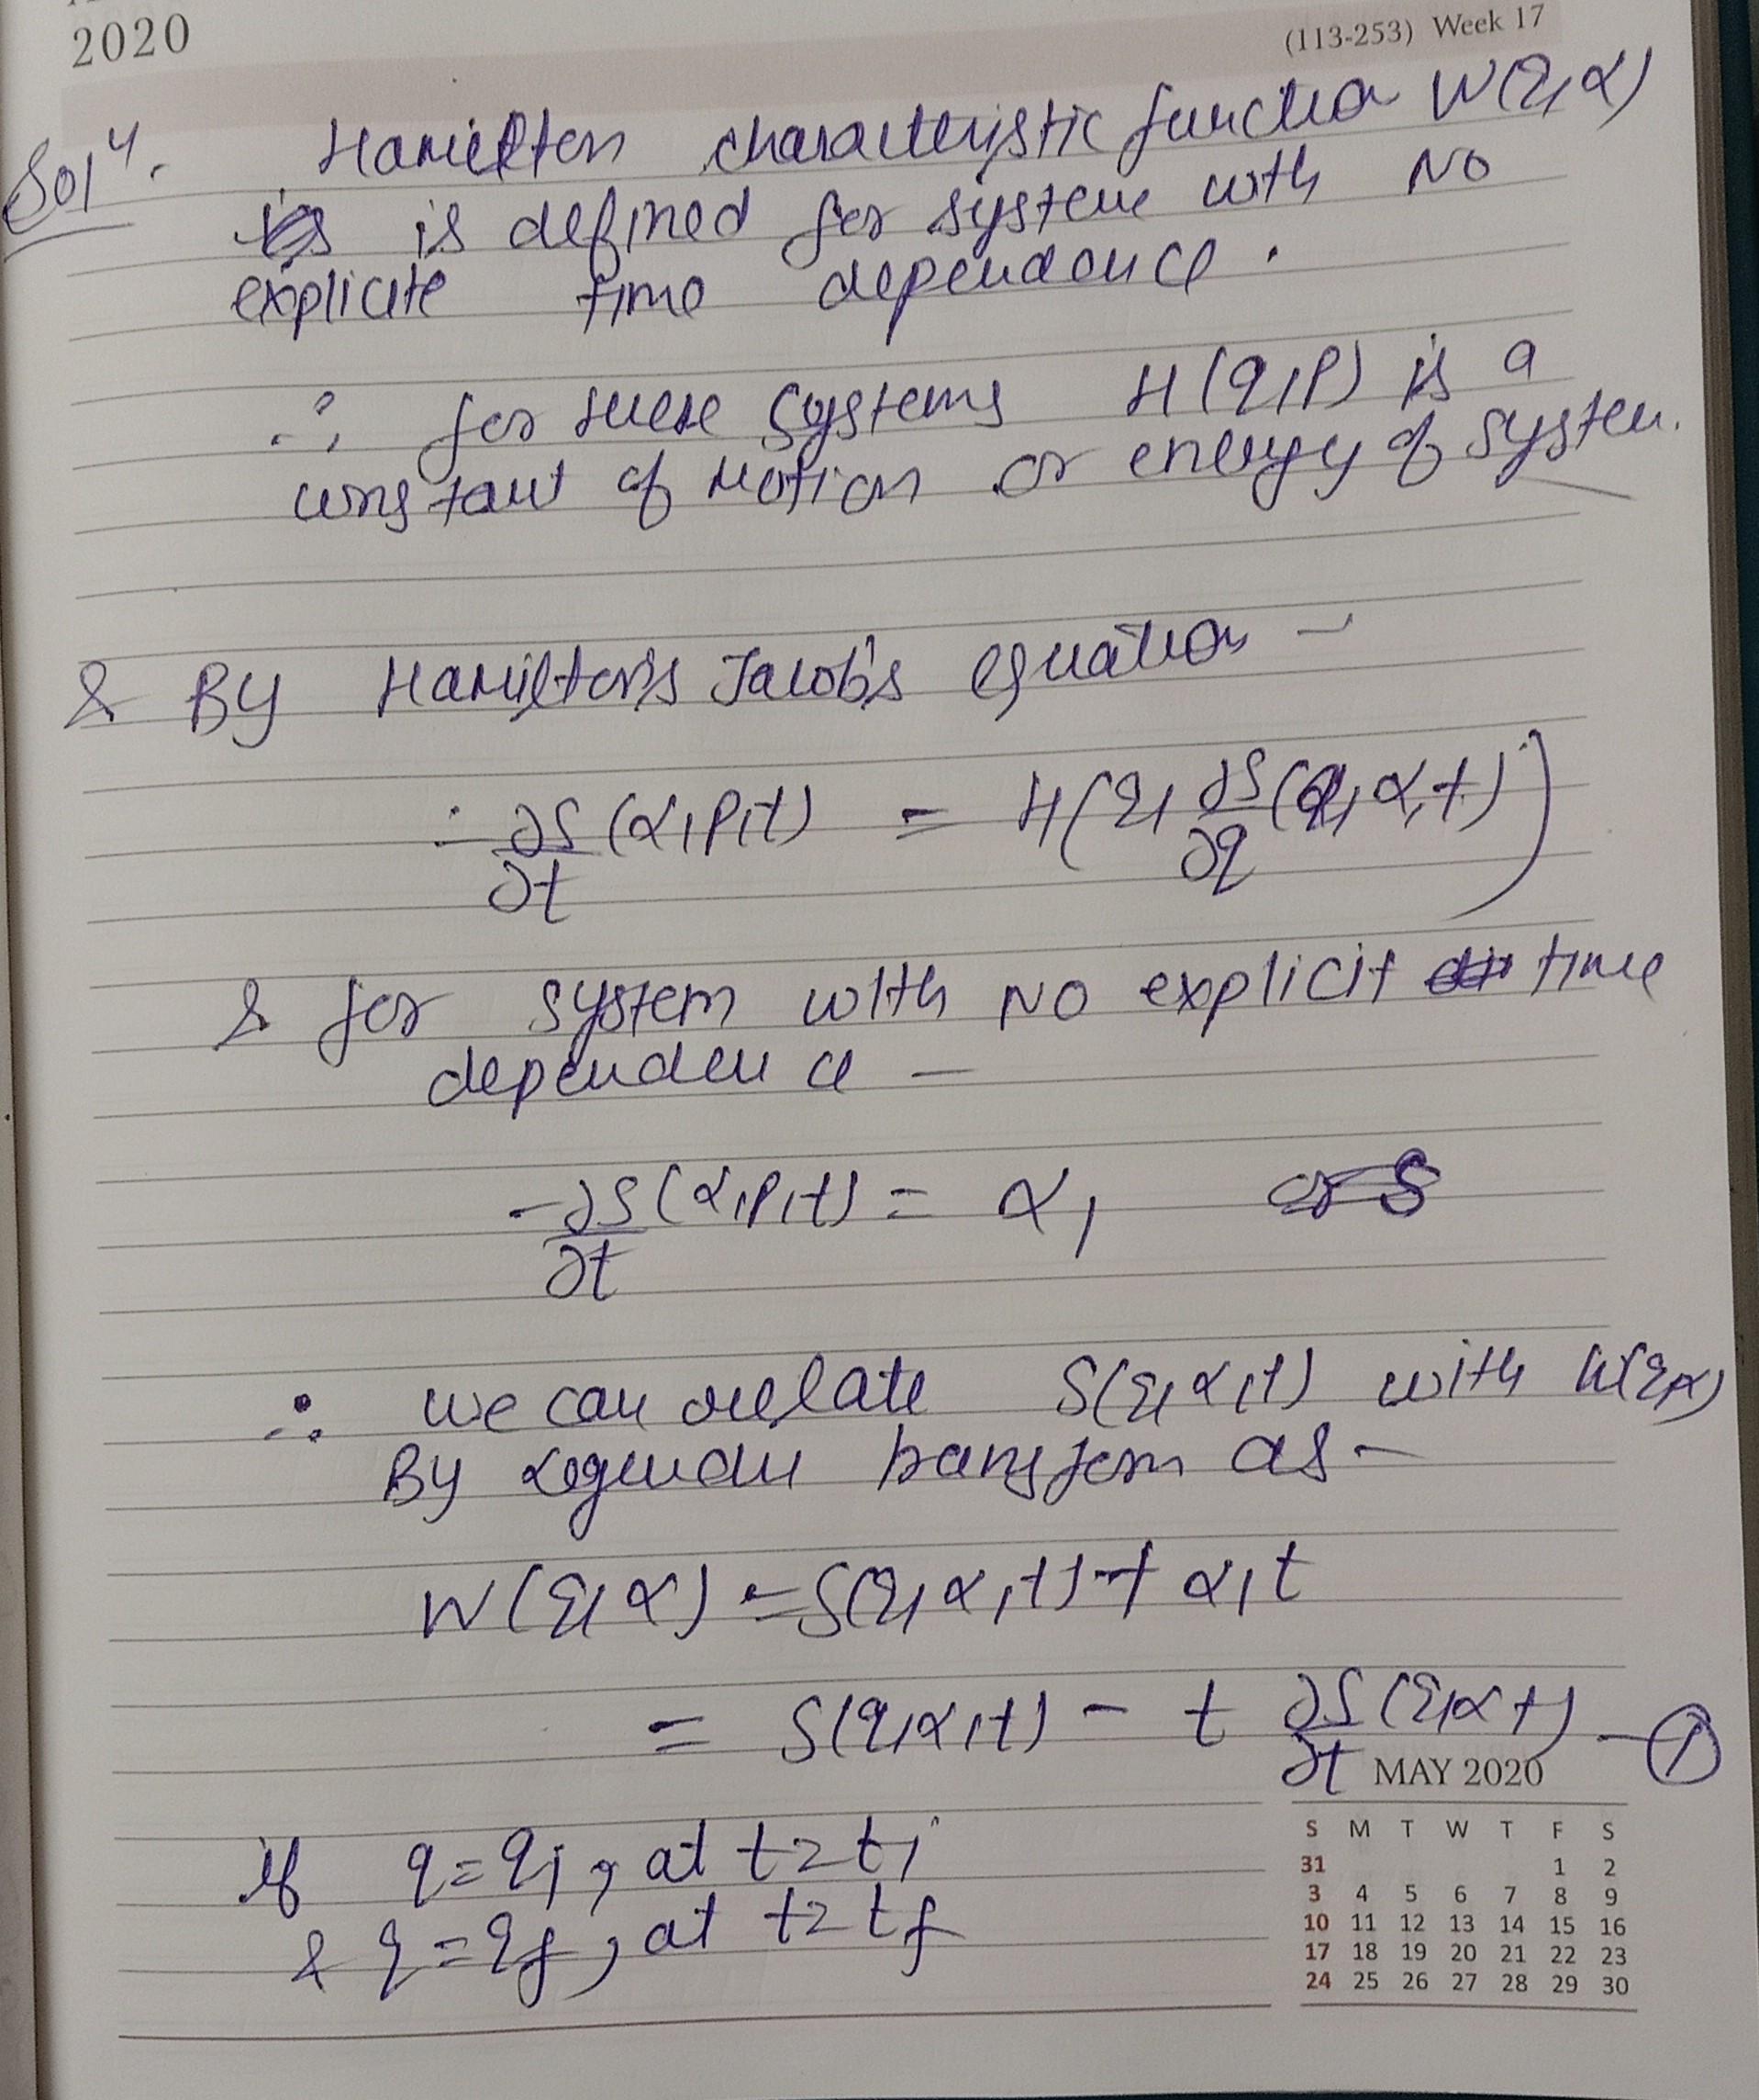 2020
(113-253) Week 17
Sol4. Hamilton characteristic function W(q,α)
is defined for system with NO
explicite time dependence.
∴ for these systems H(q,p) is a
constant of Motion or energy of system.
& By Hamilton's Jacob's equation –
-∂S/∂t (α,P,t) = H(q, ∂S/∂q (q,α,t))
& for system with NO explicit time
dependence –
-∂S/∂t (α,P,t) = α,
∴ we can relate S(q,α,t) with W(q,α)
By Legendre transform as –
W(q,α) = S(q,α,t) + α,t
= S(q,α,t) - t ∂S/∂t (q,α,t) – ①
if q=qi, at t=ti
& q=qf, at t=tf
MAY 2020
S M T W T F S
31 1 2
3 4 5 6 7 8 9
10 11 12 13 14 15 16
17 18 19 20 21 22 23
24 25 26 27 28 29 30